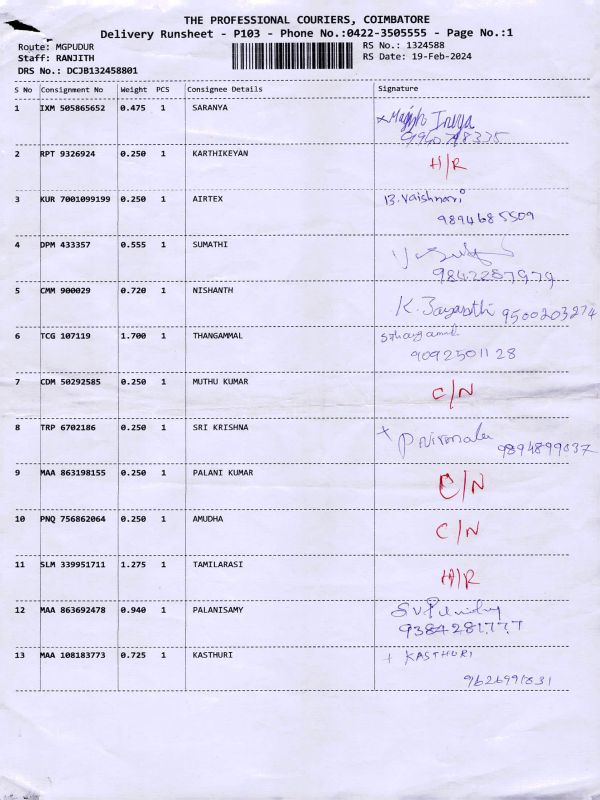 THE PROFESSIONAL COURIERS, COIMBATORE
Delivery Runsheet - P103 - Phone No.:0422-3505555 - Page No.:1
Route: MGPUDUR RS No.: 1324588
Staff: RANJITH RS Date: 19-Feb-2024
DRS No.: DCJB132458801
S No Consignment No Weight PCS Consignee Details Signature
1 IXM 505865652 0.475 1 SARANYA
2 RPT 9326924 0.250 1 KARTHIKEYAN H/R
3 KUR 7001099199 0.250 1 AIRTEX B. Vaishnavi
9894685509
4 DPM 433357 0.555 1 SUMATHI
9842287979
5 CMM 900029 0.720 1 NISHANTH K. Jayanthi 9500203274
6 TCG 107119 1.700 1 THANGAMMAL
9092501128
7 CDM 50292585 0.250 1 MUTHU KUMAR C/N
8 TRP 6702186 0.250 1 SRI KRISHNA P Nirmala 9894899037
9 MAA 863198155 0.250 1 PALANI KUMAR C/N
10 PNQ 756862064 0.250 1 AMUDHA C/N
11 SLM 339951711 1.275 1 TAMILARASI H/R
12 MAA 863692478 0.940 1 PALANISAMY
9384281777
13 MAA 108183773 0.725 1 KASTHURI + KASTHURI